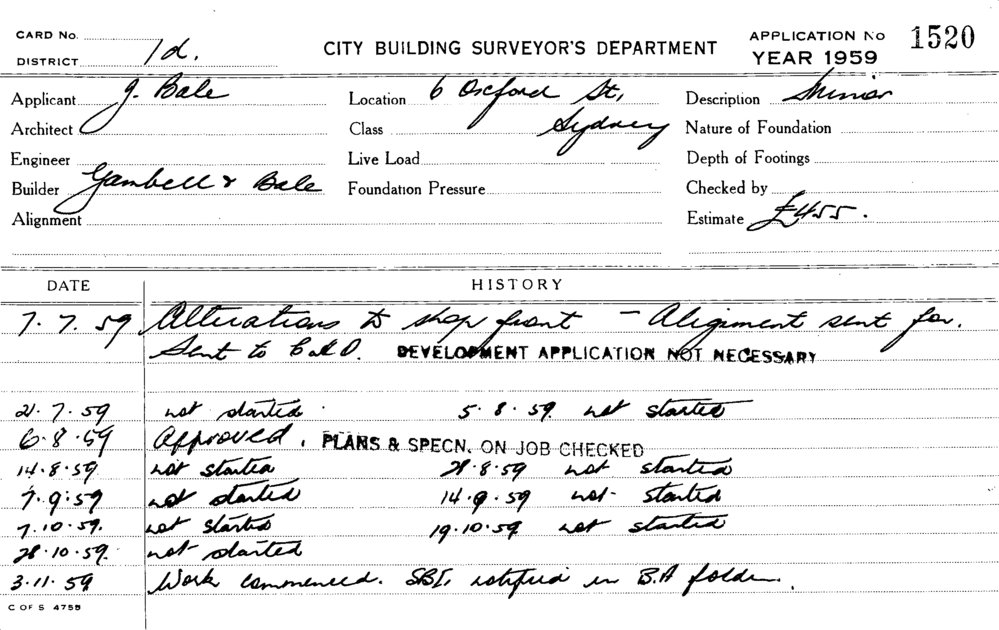 CARD No.
DISTRICT 1d.
CITY BUILDING SURVEYOR'S DEPARTMENT
APPLICATION No 1520
YEAR 1959
Applicant J. Bale
Location 6 Oxford St,
Sydney
Description Minor
Architect
Class
Nature of Foundation
Engineer
Live Load
Depth of Footings
Builder Gambell & Bale
Foundation Pressure
Checked by
Alignment
Estimate £455.
DATE HISTORY
7. 7. 59 Alterations to shop front – Alignment sent for.
Sent to DEVELOPMENT APPLICATION NOT NECESSARY
21. 7. 59 not started 5. 8. 59. not started
6. 8. 59 Approved. PLANS & SPECN. ON JOB CHECKED
14. 8. 59 not started 28. 8. 59 not started
7. 9. 59 not started 14. 9. 59 not started
7. 10. 59. not started 19. 10. 59 not started
28. 10. 59. not started
3. 11. 59 Work commenced. SBI. notified in B.A folder.
C OF S 4755